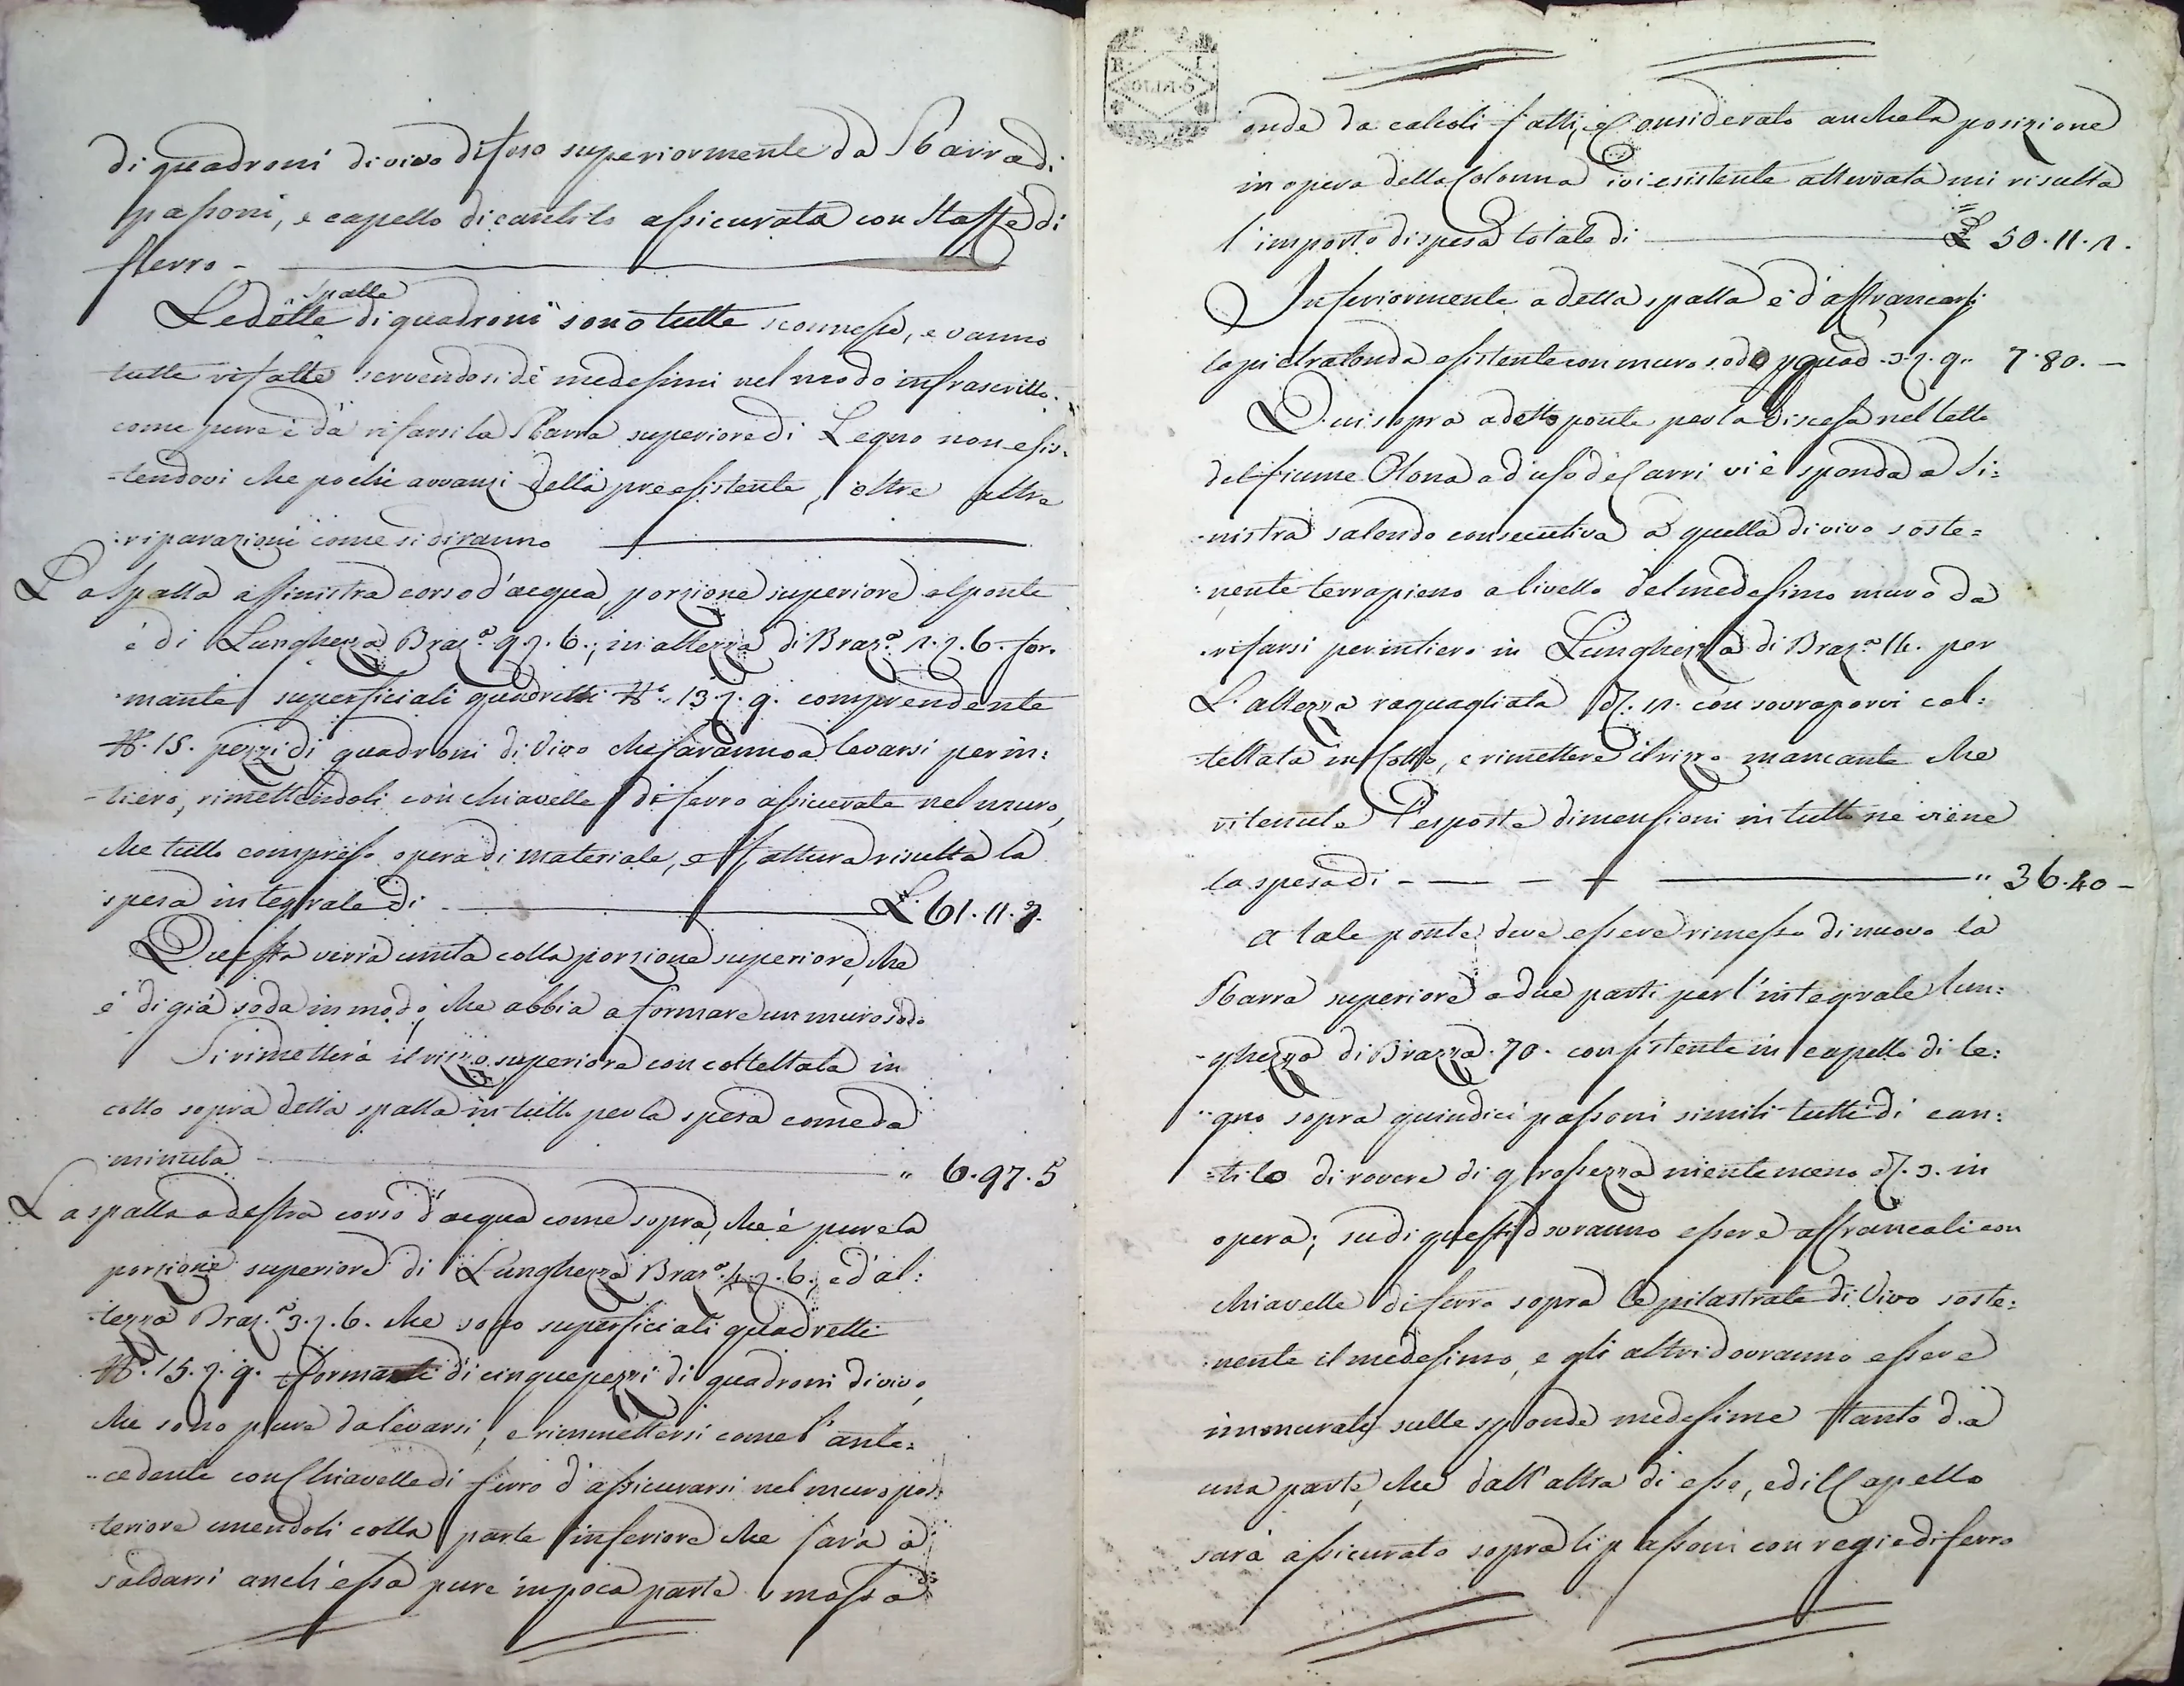 di quadroni di vivo difeso superiormente da Sbarra di
passoni, e capello di cantilo assicurata con Staffe di
fferro -
spalle
Le dette di quadroni sono tutte sconnesse, e vanno
tutte rifatte servendosi de medesimi nel modo infrascritto
come pure è da rifarsi la Sbarra superiore di Legno non esis-
-tendovi che pochi avvanzi della preesistente, oltre altre
riparazioni come si diranno
La Spalla a sinistra corso d'acqua, porzione superiore al ponte
è di Lunghezza Braz.ª 9.7.6; in altezza di Braz.ª 1.7.6. for-
mante superficiali quadretti N.º 13.7.9. comprendente
N.º 15. pezzi di quadroni di Vivo che saranno a levarsi per in:
-tiero, rimettendoli con chiavelle di ferro assicurate nel muro,
che tutto compreso opera di materiale, e fattura risulta la
spesa integrale di L. 61.11.7.
Questa verrà unita colla porzione superiore, che
è di già soda in modo, che abbia a formare un muro sodo
Si rimetterà il rizzo superiore con coltellata in
cotto sopra detta spalla in tutto per la spesa come da
minuta " 6.97.5
La spalla a destra corso d'acqua come sopra, che è pure la
porzione superiore di Lunghezza Braz.ª 4.7.6., ed al:
-tezza Braz.ª 3.7.6. che sono superficiali quadretti
N.º 15.7.9. formanti di cinque pezzi di quadroni di vivo,
che sono pure da levarsi, e rimmettersi come l'ante:
-cedente con Chiavelle di ferro d'assicurarsi nel muro pos:
-teriore unendoli colla parte inferiore che sarà a
saldarsi anch'essa pure in poca parte smossa
onde da calcoli fatti, e Considerato anche la posizione
in opera della Colonna ivi esistente atterrata mi risulta
l'importo di spesa totale di L. 50.11.1.
Inferiormente a detta spalla è d'affrancarsi
la pietra tonda esistente con muro sodo p quad. 3.7.9. 7.80. -
Di sopra a detto ponte per la discesa nel letto
del fiume Olona ad uso de Carri vi è sponda a Si:
-nistra salendo consecutiva a quella di vivo soste=
-nente terrapieno a livello del medesimo muro da
rifarsi per intiero in Lunghezza di Braz.ª 14. per
L'altezza raguagliata 7. 11. con sovraporvi col:
-tellata in Cotto, e rimettere il rizzo mancante che
ritenute l'esposte dimensioni in tutto ne viene
la spesa di " 36.40 -
A tale ponte deve essere rimesso di nuovo la
Sbarra superiore a due parti per l'integrale lun:
-ghezza di Brazza 70. consistente in capello di le:
gno sopra quindici passoni simili tutti di can:
-tilo di rovere di grossezza niente meno 7. 3. in
opera; sudi questi dovranno essere affrancati con
chiavelle di ferro sopra le pilastrate di Vivo soste:
nente il medesimo, e gli altri dovranno essere
immurati sulle sponde medesime tanto da
una parte, che dall'altra di esso, ed il Capello
sarà assicurato sopra li passoni con regie di ferro